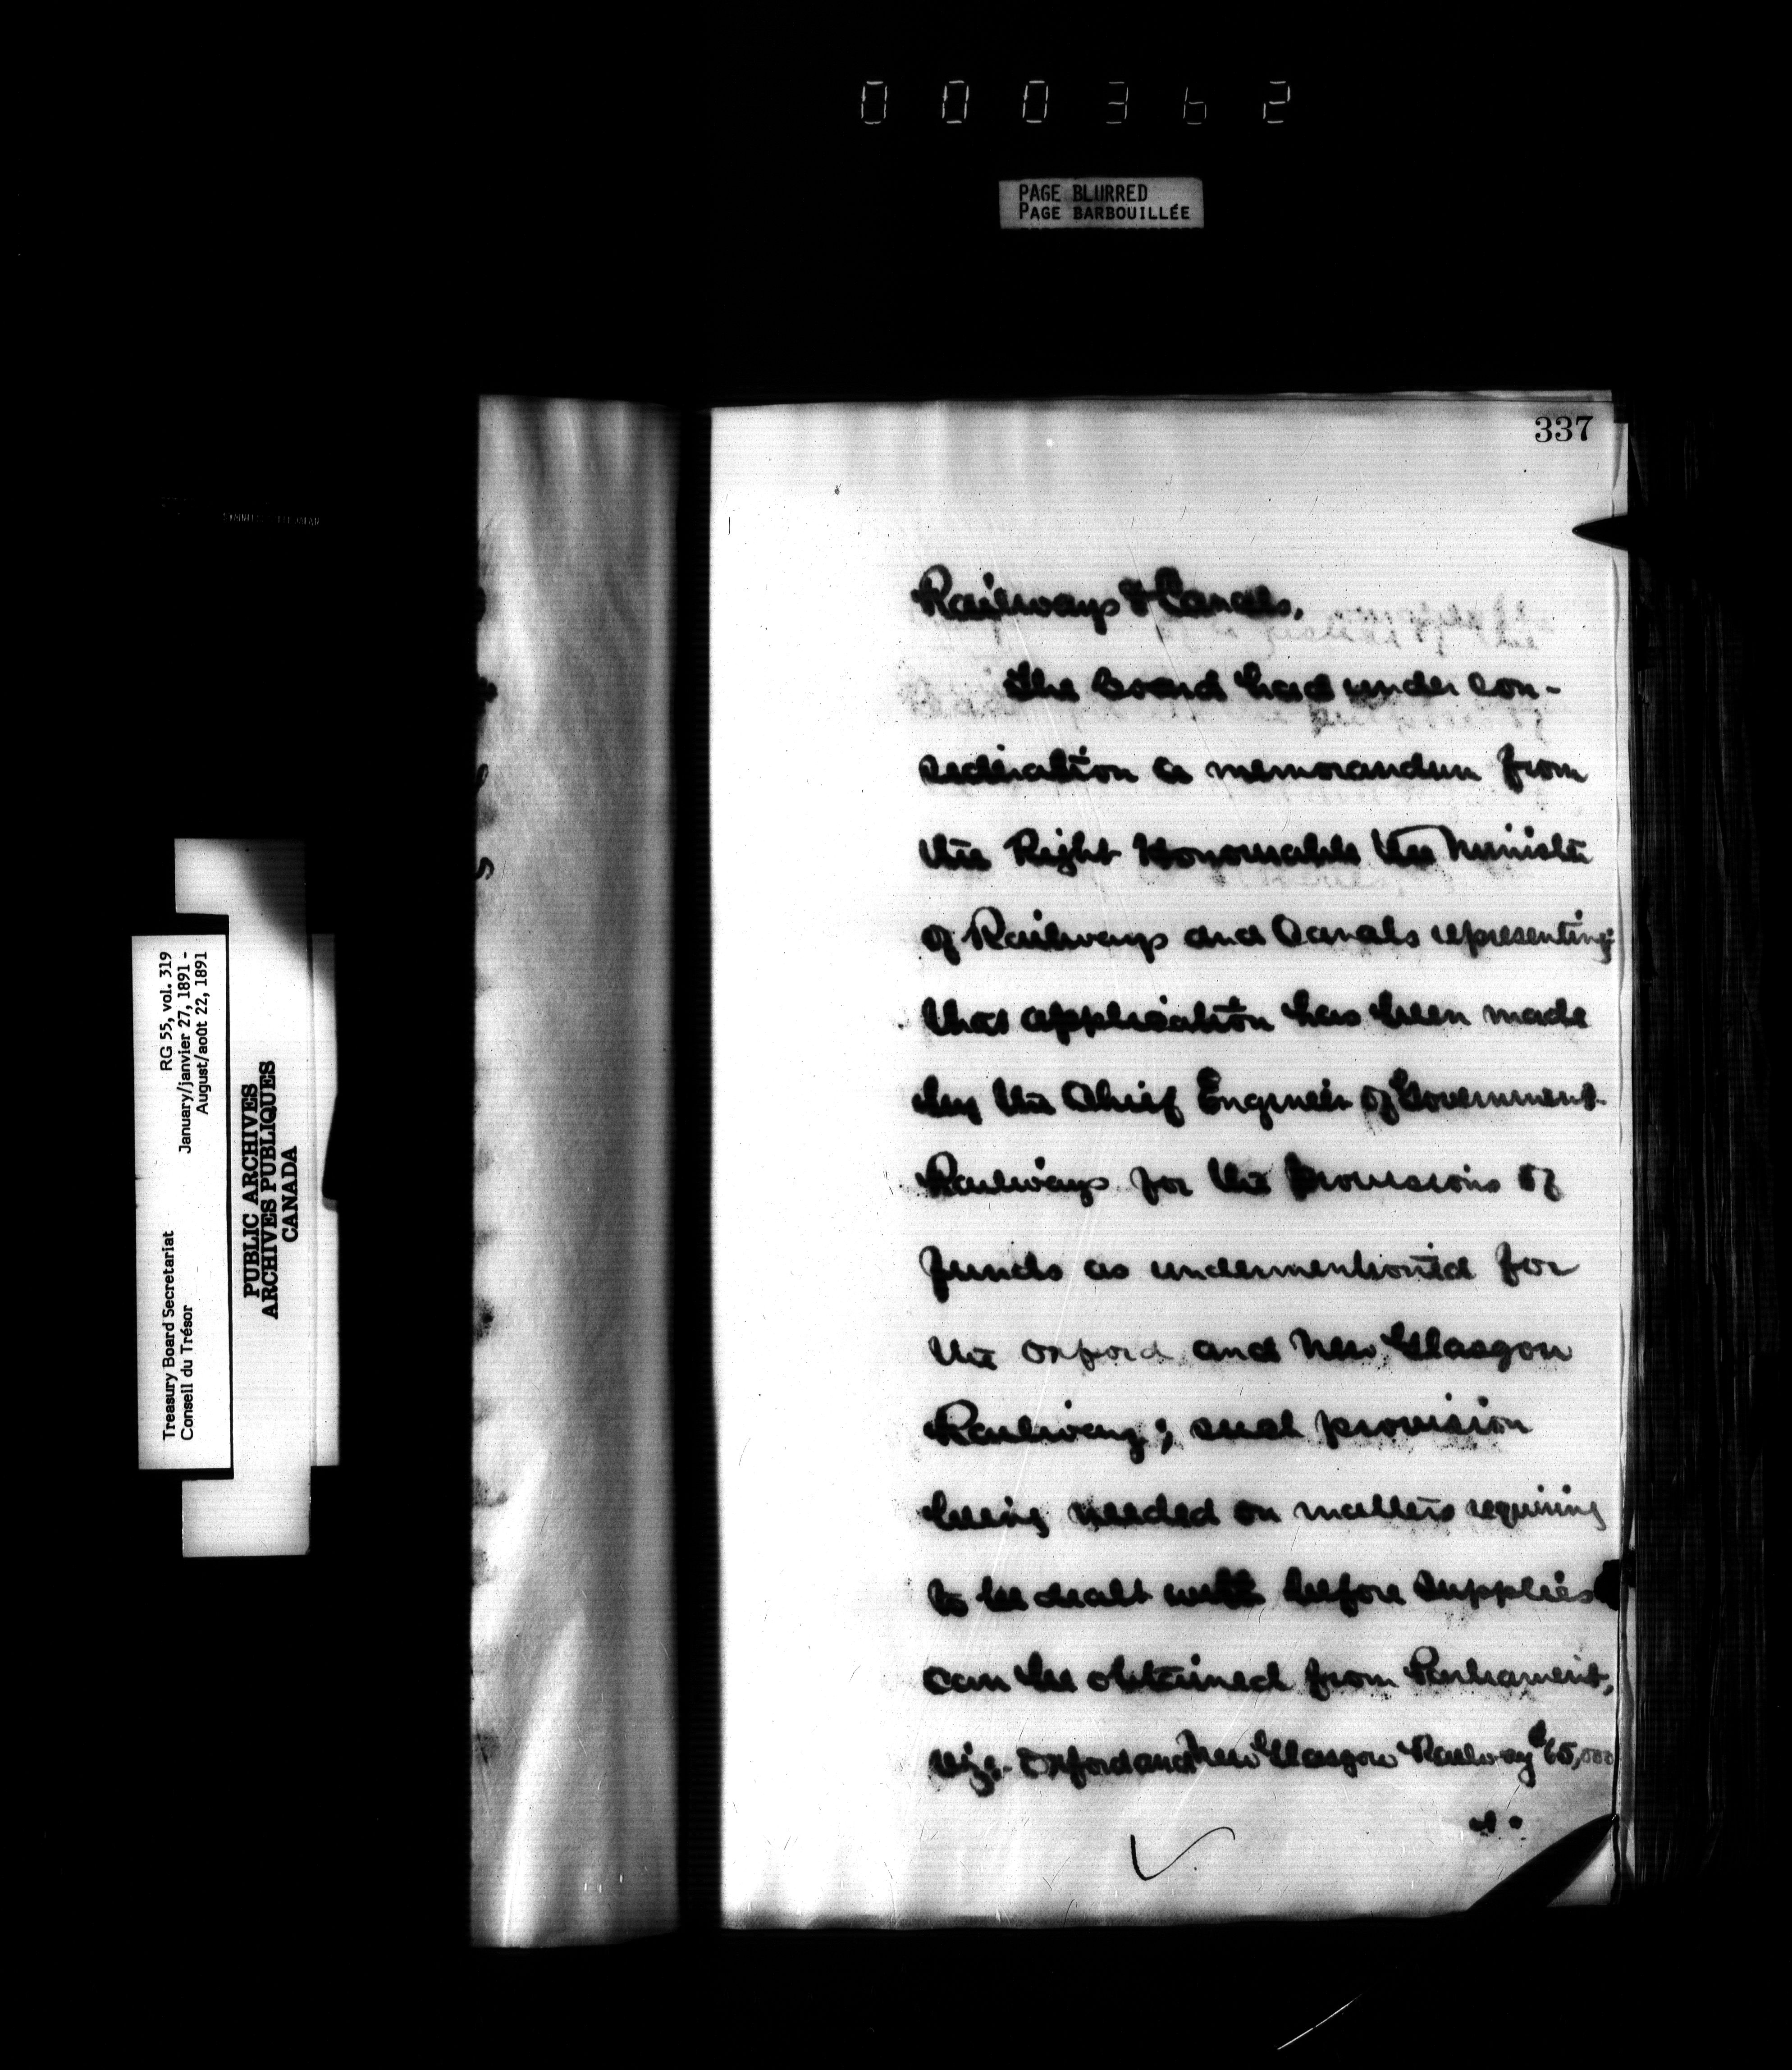 000362
PAGE BLURRED
PAGE BARBOUILLÉE
337
Railways & Canals.
The Board had under con-
sideration a memorandum from
the Right Honourable the Minister
of Railways and Canals representing
that application has been made
by the Chief Engineer of Government
Railways for the provisions of
funds as undermentioned for
the Oxford and New Glasgow
Railway; such provision
being needed on matters requiring
to be dealt with before supplies
can be obtained from Parliament,
viz:- Oxford and New Glasgow Railway $65,000
Treasury Board Secretariat RG 55, vol. 319
Conseil du Trésor January/janvier 27, 1891 -
August/août 22, 1891
PUBLIC ARCHIVES
ARCHIVES PUBLIQUES
CANADA